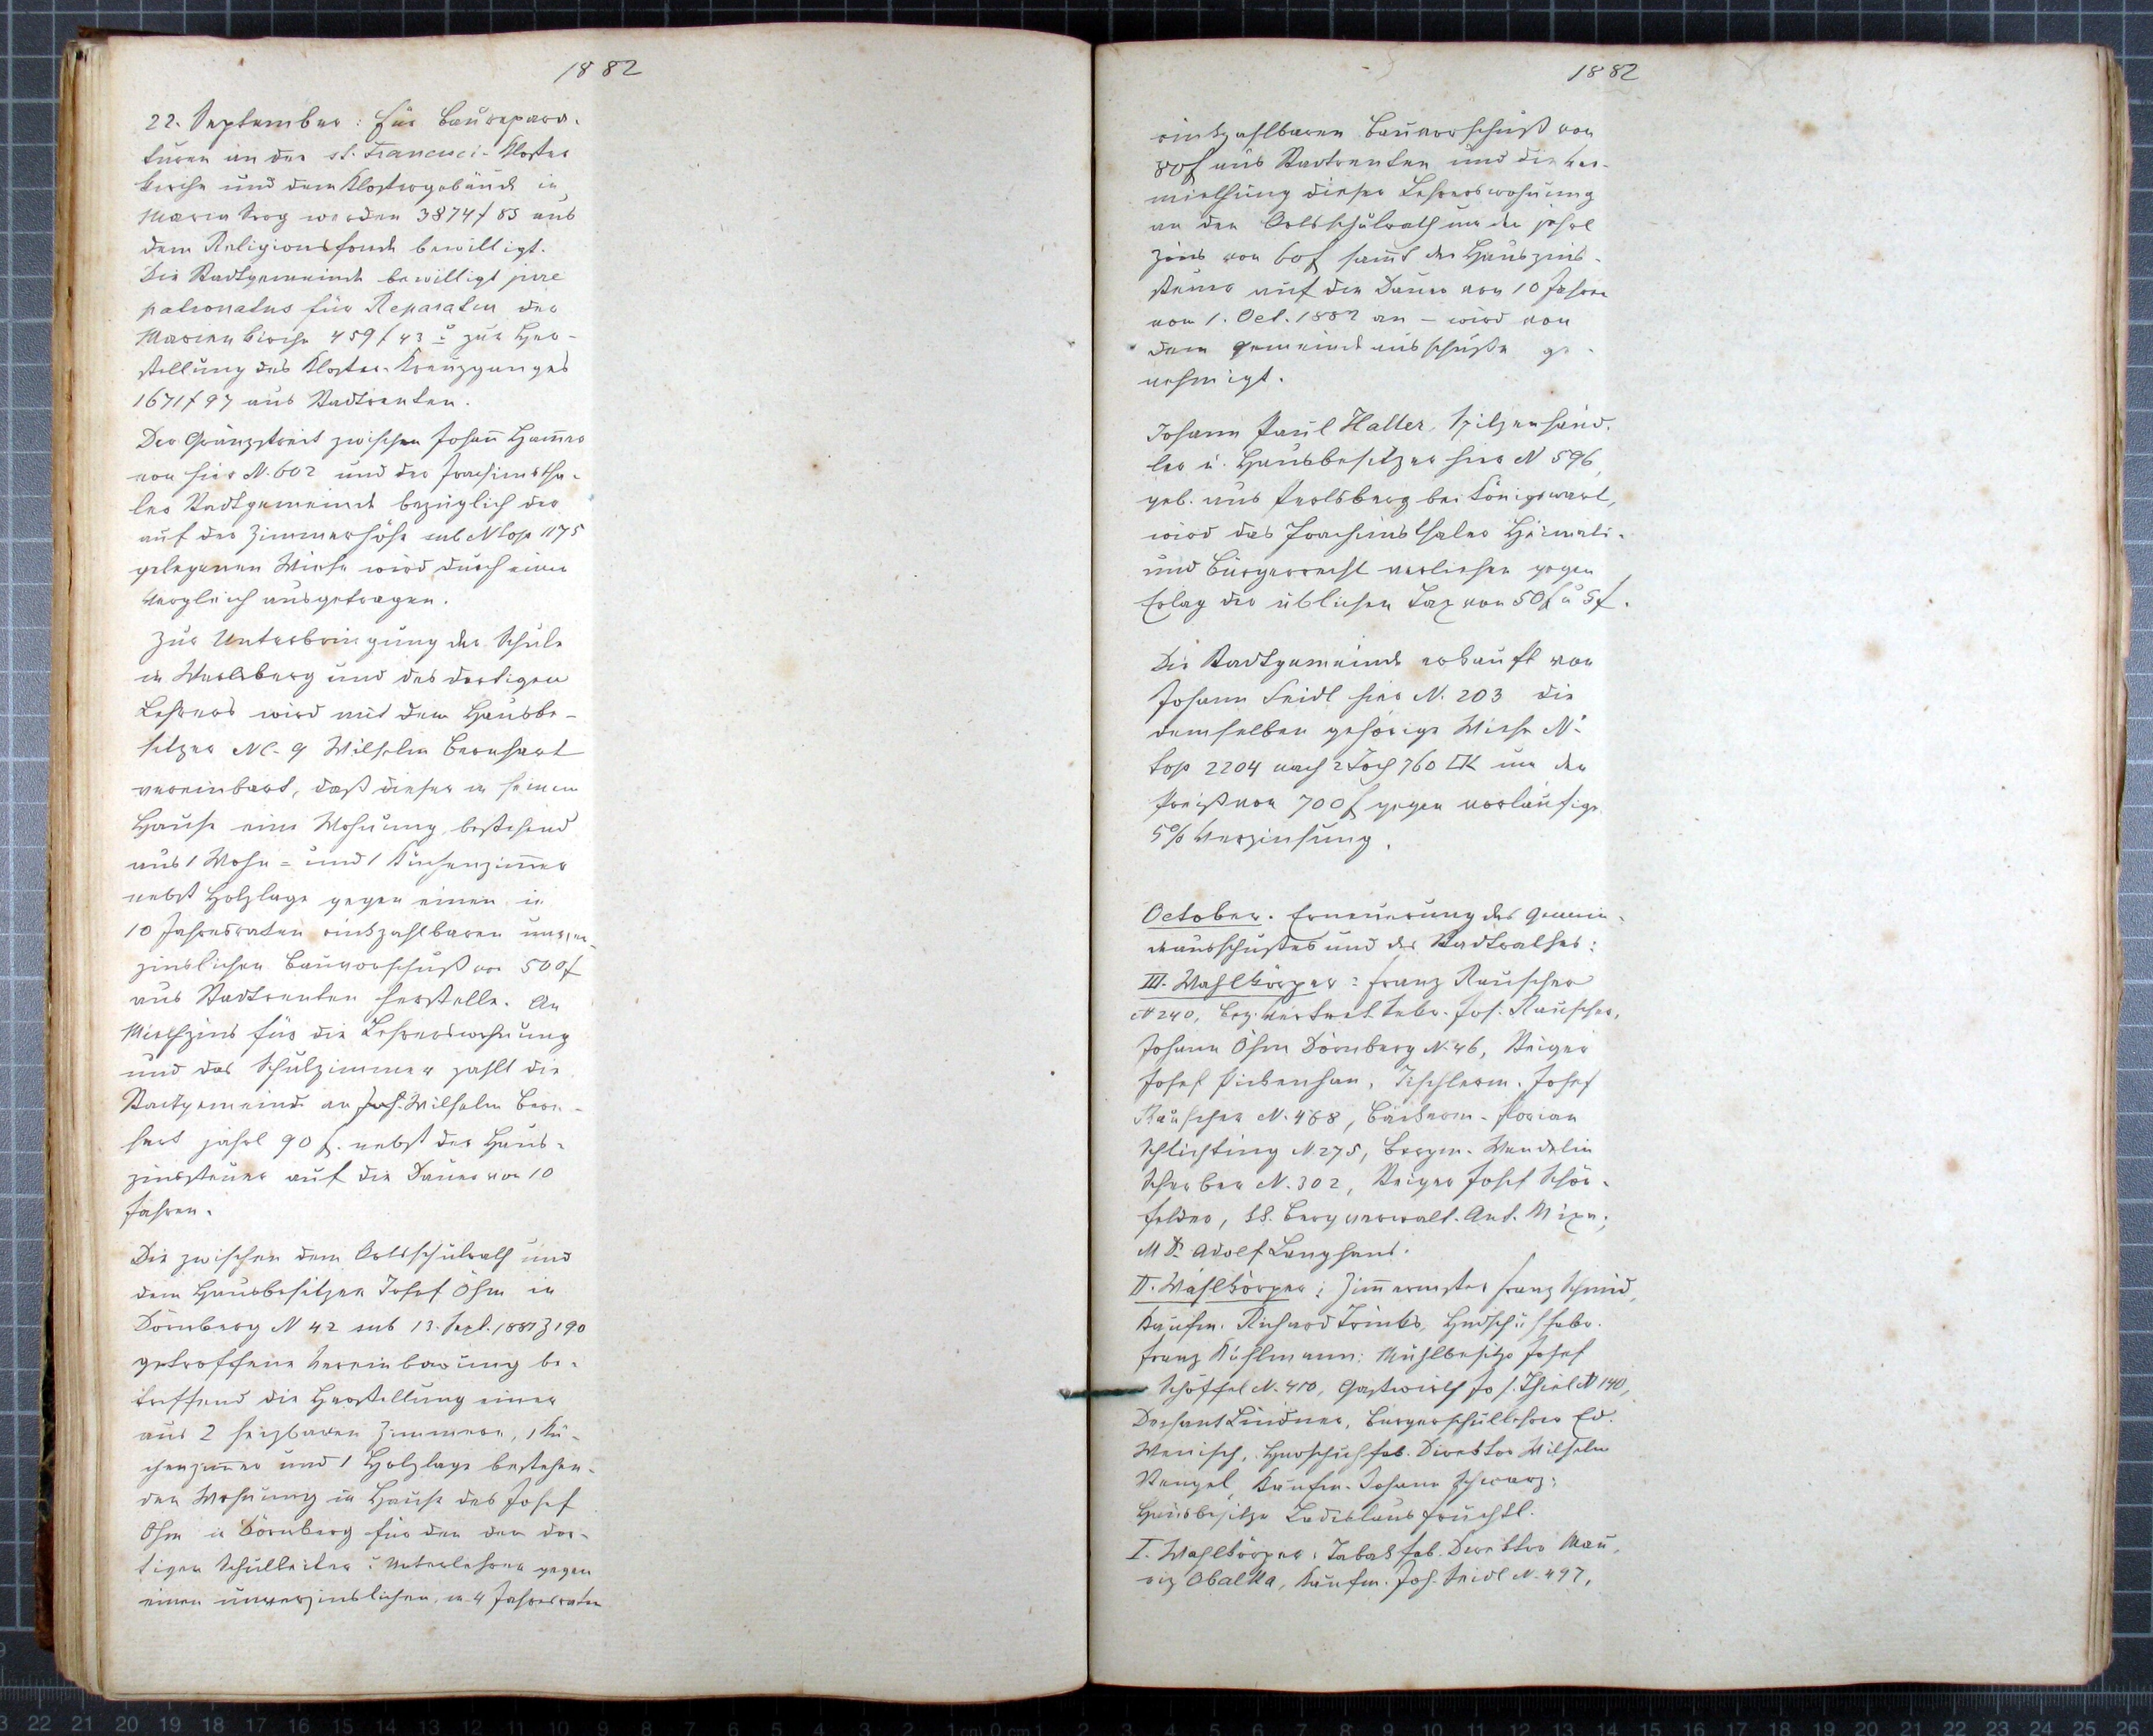 1882
22. September: Für Baurepara-
turen an der st. Francisci-Kloster
kirche und dem Klostergebäude in
Maria Sorg werden 3874 f 85 aus
dem Religionsfonde bewilligt.
Die Stadtgemeinde bewilligt jure
patronatus für Reparatur der
Marienkirche 459 f 43 u zur Her-
stellung des Kloster-Kreuzganges
1671 f 97 aus Stadtrenten.
Der Gränzstreit zwischen Johan̄ Ham̄er
von hier N. 602 und der Joachimstha-
ler Stadtgemeinde bezüglich der
auf der Zimmerhöhe sub N top 1175
gelegenen Wiese wird durch einen
Vergleich ausgetragen.
Zur Unterbringung der Schule
in Werlsberg und des dortigen
Lehrers wird mit dem Hausbe-
sitzer NC. 9 Wilhelm Bernhart
vereinbart, daß dieser in seinem
Hause eine Wohnung, bestehend
aus 1 Wohn- und 1 Küchenzim̄er
nebst Holzlage gegen einen in
10 Jahresraten rückzahlbaren unver-
zinslichen Bauvorschuß von 500 f
aus Stadtrenten herstelle. An
Miethzins für die Lehrerswohnung
und das Schulzimmer zahlt die
Stadtgemeinde an Wilhelm Bern-
hart jährl 90 f. nebst der Haus-
zinssteuer auf die Dauer von 10
Jahren.
Die zwischen dem Ortsschulrath und
dem Hausbesitzer Josef Öhm in
Dörnberg N 42 sub 13. Sept. 1882 Z 190
getroffene Vereinbarung be-
treffend die Herstellung einer
aus 2 heizbaren Zimmern, 1 Kü-
chenzim̄er und 1 Holzlage bestehen-
den Wohnung in Hause des Josef
Öhm in Dörnberg für den den dor-
tigen Schulleiter u Unterlehrer gegen
einen unverzinslichen, in 4 Jahresraten
1882
rückzahlbaren Bauvorschuß von
80 f aus Stadtrenten und die Ver-
miethung dieser Lehrerswohnung
an den Ortsschulrath um den jährl
Zins von 60 f sam̄t der Hauszins-
steuer auf die Dauer von 10 Jahren
vom 1. Oct. 1882 an – wird von
dem Gemeindeausschuße ge-
nehmigt.
Johann Paul Halter, Spitzenhänd-
ler u. Hausbesitzer hier N 596,
geb. aus Perlsberg bei Königswart,
wird das Joachimsthaler Heimats-
und Bürgerrecht verliehen gegen
Erlag der üblichen Tax von 50 f u 5 f.
Die Stadtgemeinde erkauft von
Johann Seidl hier N. 203 die
demselben gehörige Wiese N°
top 2204 nach 2 Joch 760 □K um den
Preiß von 700 f gegen vorläufige
5% Verzinsung.
October. Erneuerung des Gemein-
deausschußes und des Stadtrathes:
III. Wahlkörper: Franz Rauscher
N 240, Jos. Rauscher,
Johann Öhm Dörnberg N. 46, Steiger
Josef Pickenhan, Tischlerm. Josef
Rauscher N. 468, Bäckerm. Florian
Schlichting N. 275, Bergm. Wendelin
Scherber N. 302, Steiger Josef Schön-
felder, kk. Bergverwalt. Ant. Mixa,
M Dr. Adolf Langhans.
II. Wahlkörper: Zim̄ermster Franz Schmid,
Kaufm. Richard Trinks, Handschuhfabr.
Franz Kuhlmann, Mühlbesitzer Josef
Schöffel N. 410, Gastwirth Jos. Thiel N 140,
Dechant Lindner, Bürgerschullehrer Ed.
Wenisch, Handschuhfab. Direktor Wilhelm
Stengel, Kaufm. Johann Schwarz,
Hausbesitzer Ladislaus Früchtl.
I. Wahlkörper: Tabakfab. Direktor Mau-
riz Obalka, Kaufm. Joh. Seidl N. 497,